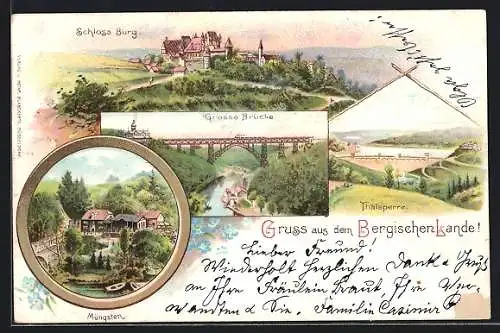 Schloss Burg.
Grosse Brücke
Thalsperre.
Müngsten.
Gruss aus dem Bergischen Lande!
Lieber Freund!
Wiederholt herzlichen Dank u. Gruß
an Ihre Fräulein Braut Ihre Ver-
wandten u Sie. Familie Casimir